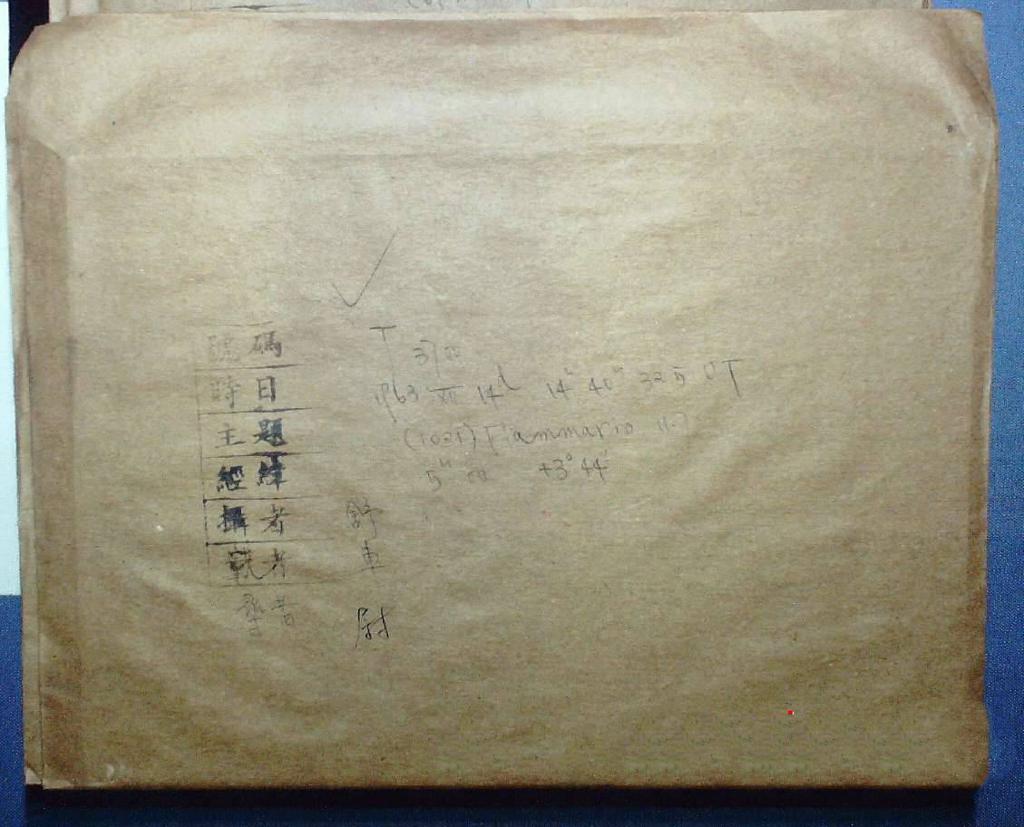 號碼 T 3700
時日 1963 XII 14d 14h 40m 32s.5 UT
主題 (1021) Flammario
經緯 5h 00 +3° 44'
攝者 舒
觀者 車
尉